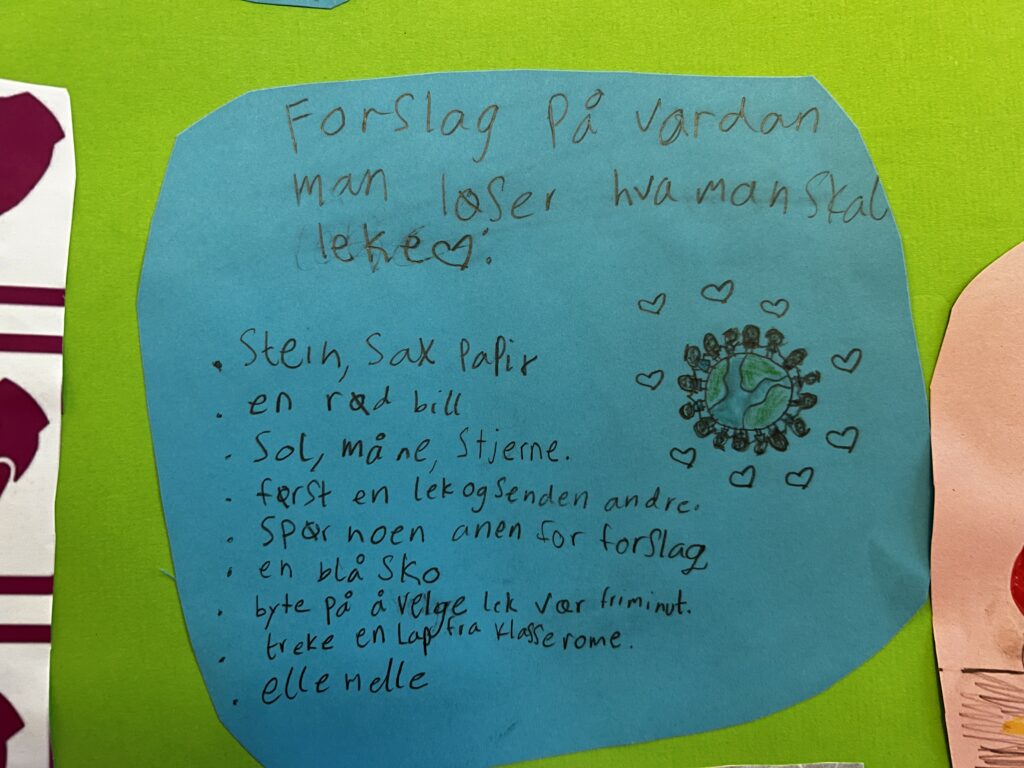 Forslag på vardan
man løser hva man skal
leke♡:
• Stein, Sax papir
• en rød bill
• Sol, måne, Stjerne.
• først en lek og senden andre.
• spør noen anen for forslag
• en blå sko
• byte på å velge lek vær friminut.
• treke en lap fra klasserome.
• elle melle